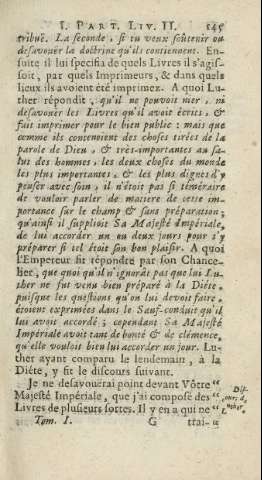 I. PART. LIV. II. 145
tribuë. La seconde, si tu veux soûtenir ou
desavouër la doctrine qu'ils contiennent. En-
suite il lui specifia de quels Livres il s'agis-
soit, par quels Imprimeurs, & dans quels
lieux ils avoient été imprimez. A quoi Lu-
ther répondit, qu'il ne pouvoit nier, ni
desavouër les Livres qu'il avoit écrits, &
fait imprimer pour le bien public : mais que
comme ils contenoient des choses tirées de la
parole de Dieu, & très-importantes au sa-
lut des hommes, les deux choses du monde
les plus importantes, & les plus dignes d'y
penser avec soin, il n'étoit pas si téméraire
de vouloir parler de matiere de cette im-
portance sur le champ & sans préparation;
qu'ainsi il supplioit Sa Majesté Impériale,
de lui accorder un ou deux jours pour s'y
préparer si tel étoit son bon plaisir. A quoi
l'Empereur fit répondre par son Chance-
lier, que quoi qu'il n'ignorât pas que lui Lu-
ther ne fut venu bien préparé à la Diéte,
puisque les questions qu'on lui devoit faire,
étoient exprimées dans le Sauf-conduit qu'il
lui avoit accordé; cependant Sa Majesté
Impériale avoit tant de bonté & de clémence,
qu'elle vouloit bien lui accorder un jour. Lu-
ther ayant comparu le lendemain, à la
Diéte, y fit le discours suivant.
Je ne desavouërai point devant Vôtre “
Majesté Impériale, que j'ai composé des “
Livres de plusieurs sortes. Il y en a qui ne “
Dis-
cours de
Luther.
Tom. I. G trai- “